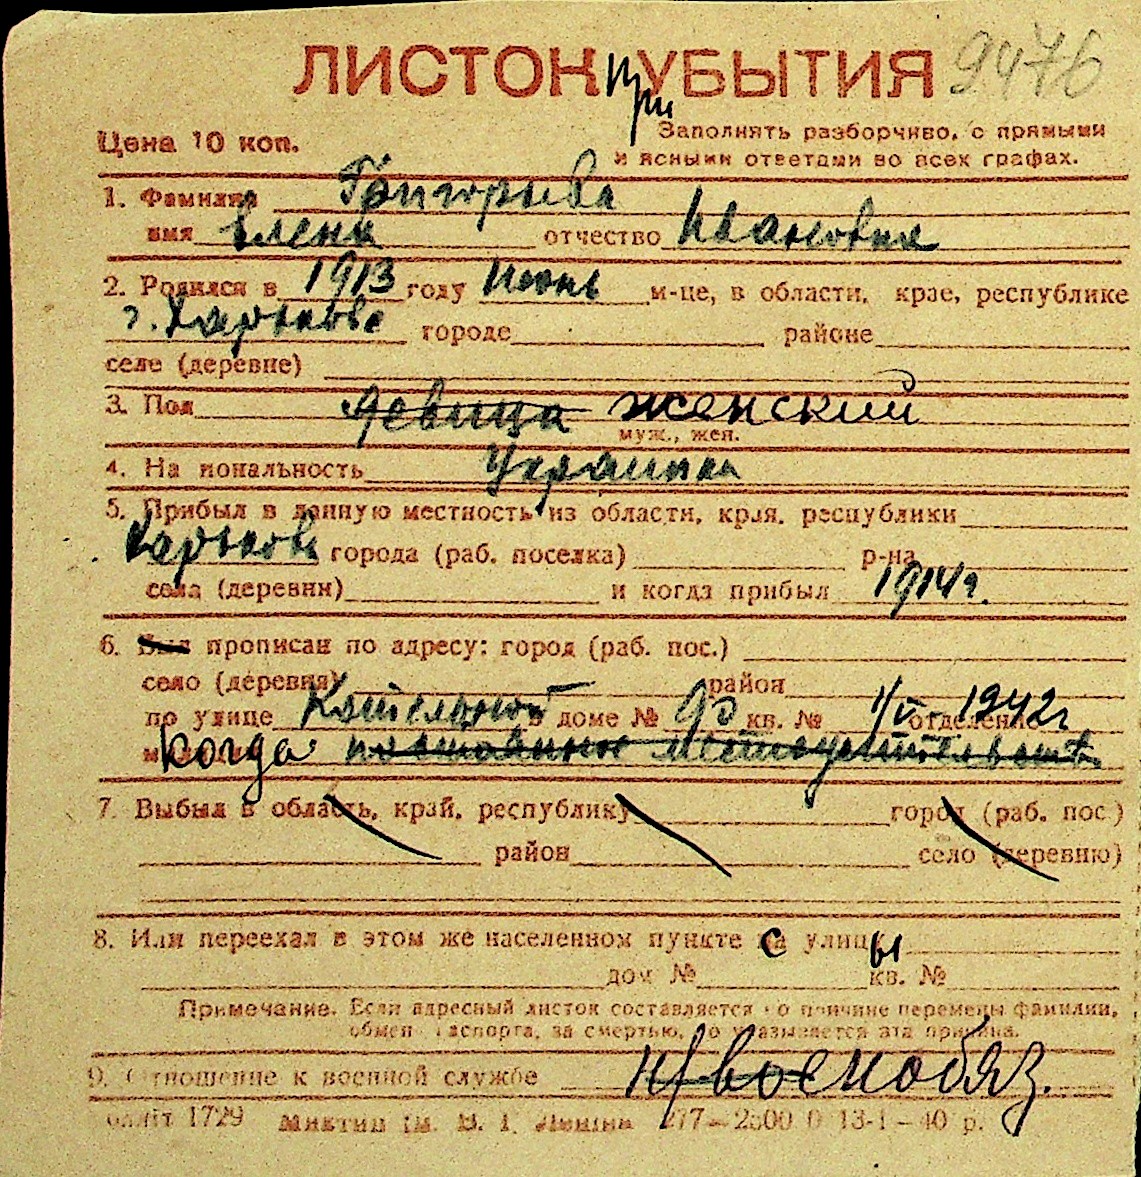 ЛИСТОК при УБЫТИЯ 9476
Цена 10 коп.
Заполнять разборчиво, с прямыми
и ясными ответами во всех графах.
1. Фамилия Григорьева
имя Елена отчество Ивановна
2. Родился в 1913 году Июнь м-це, в области, крае, республике
г. Харькове городе районе
селе (деревне)
3. Пол девица женский
муж., жен.
4. Национальность Украинка
5. Прибыл в данную местность из области, края, республики
Харьков города (раб. поселка) р-на
села (деревни) и когда прибыл 1914 г.
6. Был прописан по адресу: город (раб. пос.)
село (деревня) район
по улице в доме № кв. № отделение 1942 г
когда постоянное
7. Выбыл в область, край, республику город (раб. пос.)
район село (деревню)
8. Или переехал в этом же населенном пункте с улицы
дом № кв. №
Примечание. Если адресный листок составляется по причине перемены фамилии,
обмен паспорта, за смертью, то указывается эта причина.
9. Отношение к военной службе н/военобяз.
1729 277—2500 0 13-1—40 р.